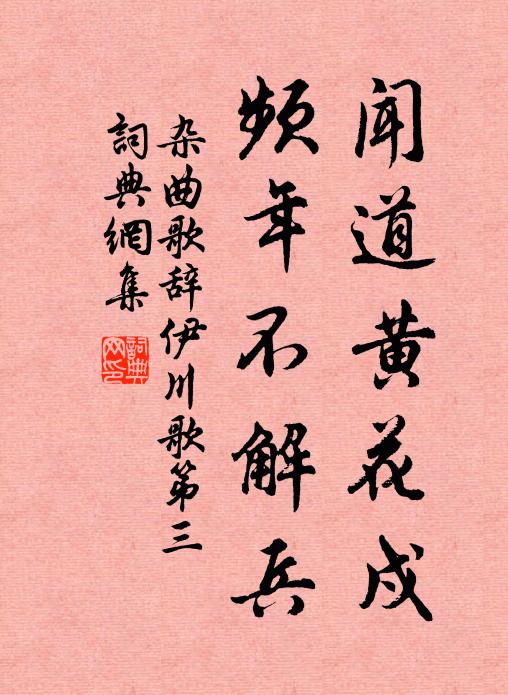 闻道黄花戍
频年不解兵
杂曲歌辞伊川歌第三
詞典網集
詞典網印